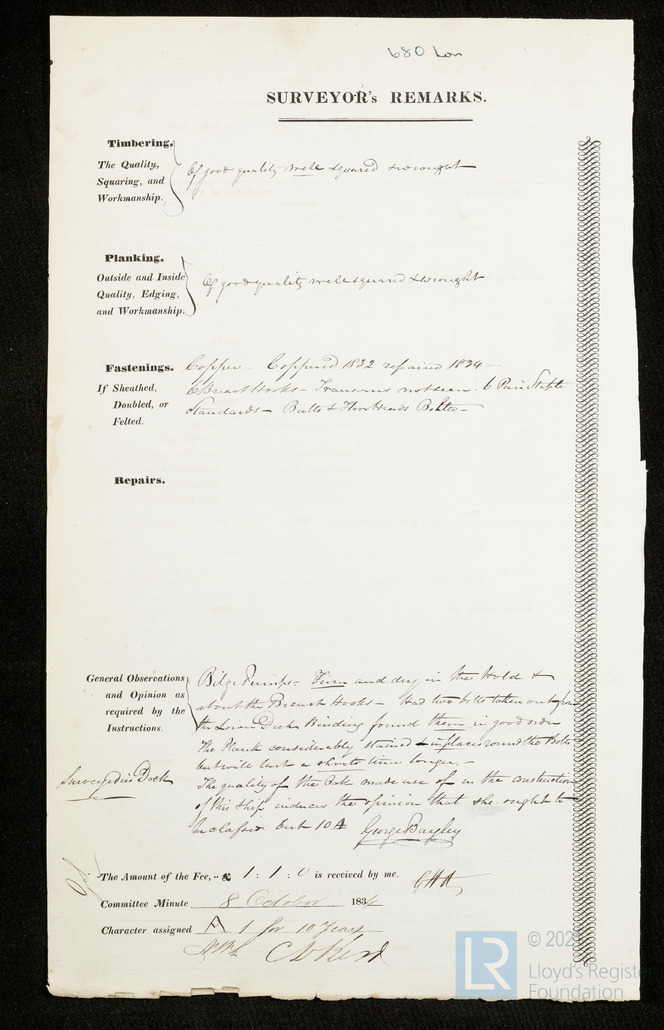 680 Ton
SURVEYOR's REMARKS.
Timbering.
The Quality,
Squaring, and
Workmanship.
Of good quality well squared & wrought
Planking.
Outside and Inside
Quality, Edging,
and Workmanship.
Of good quality well squared & wrought
Fastenings.
If Sheathed,
Doubled, or
Felted.
Copper - Coppered 1832 repaired 1834 -
6 Breast Hooks - Transoms not seen. 6 Pair Staple
Standards - Butts & Floor Heads Bolted -
Repairs.
General Observations
and Opinion as
required by the
Instructions.
Bilge Pumps - Firm and dry in the Hold &
about the Breast Hooks - Had two bolts taken out from
the Lower Deck Binding found them in good order
The Plank considerably stained in places round the Bolts
but will last a shorts time longer. -
The quality of the Oak made use of in the construction
of this Ship induces the opinion that she ought to
be classed but 10 A George Bayley
Surveyed in Dock
The Amount of the Fee, .. £ 1 : 1 : 0 is received by me.
Committee Minute 8 October 1834
Character assigned A 1 for 10 Years
© 202
LR
Lloyd's Register
Foundation